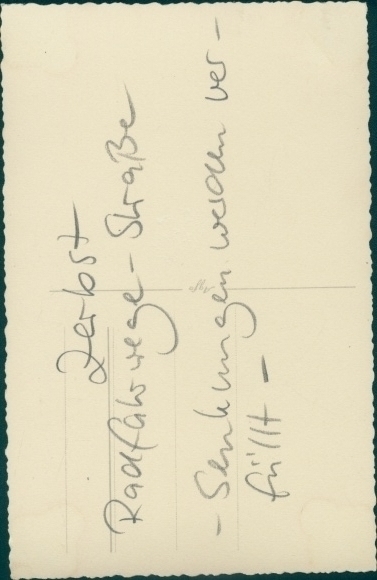 Zerbst
Radfahrwege-Straße
- Senkungen werden ver-
füllt -